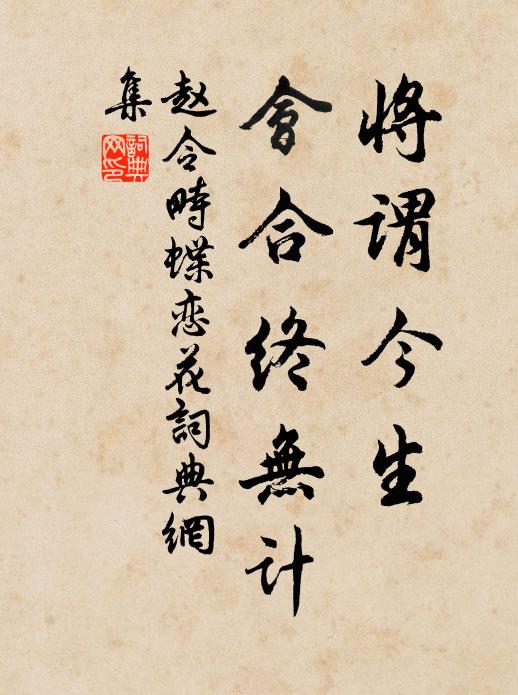 将謂今生
會合終無计
赵令畤蝶恋花詞典網
集
詞典
网印